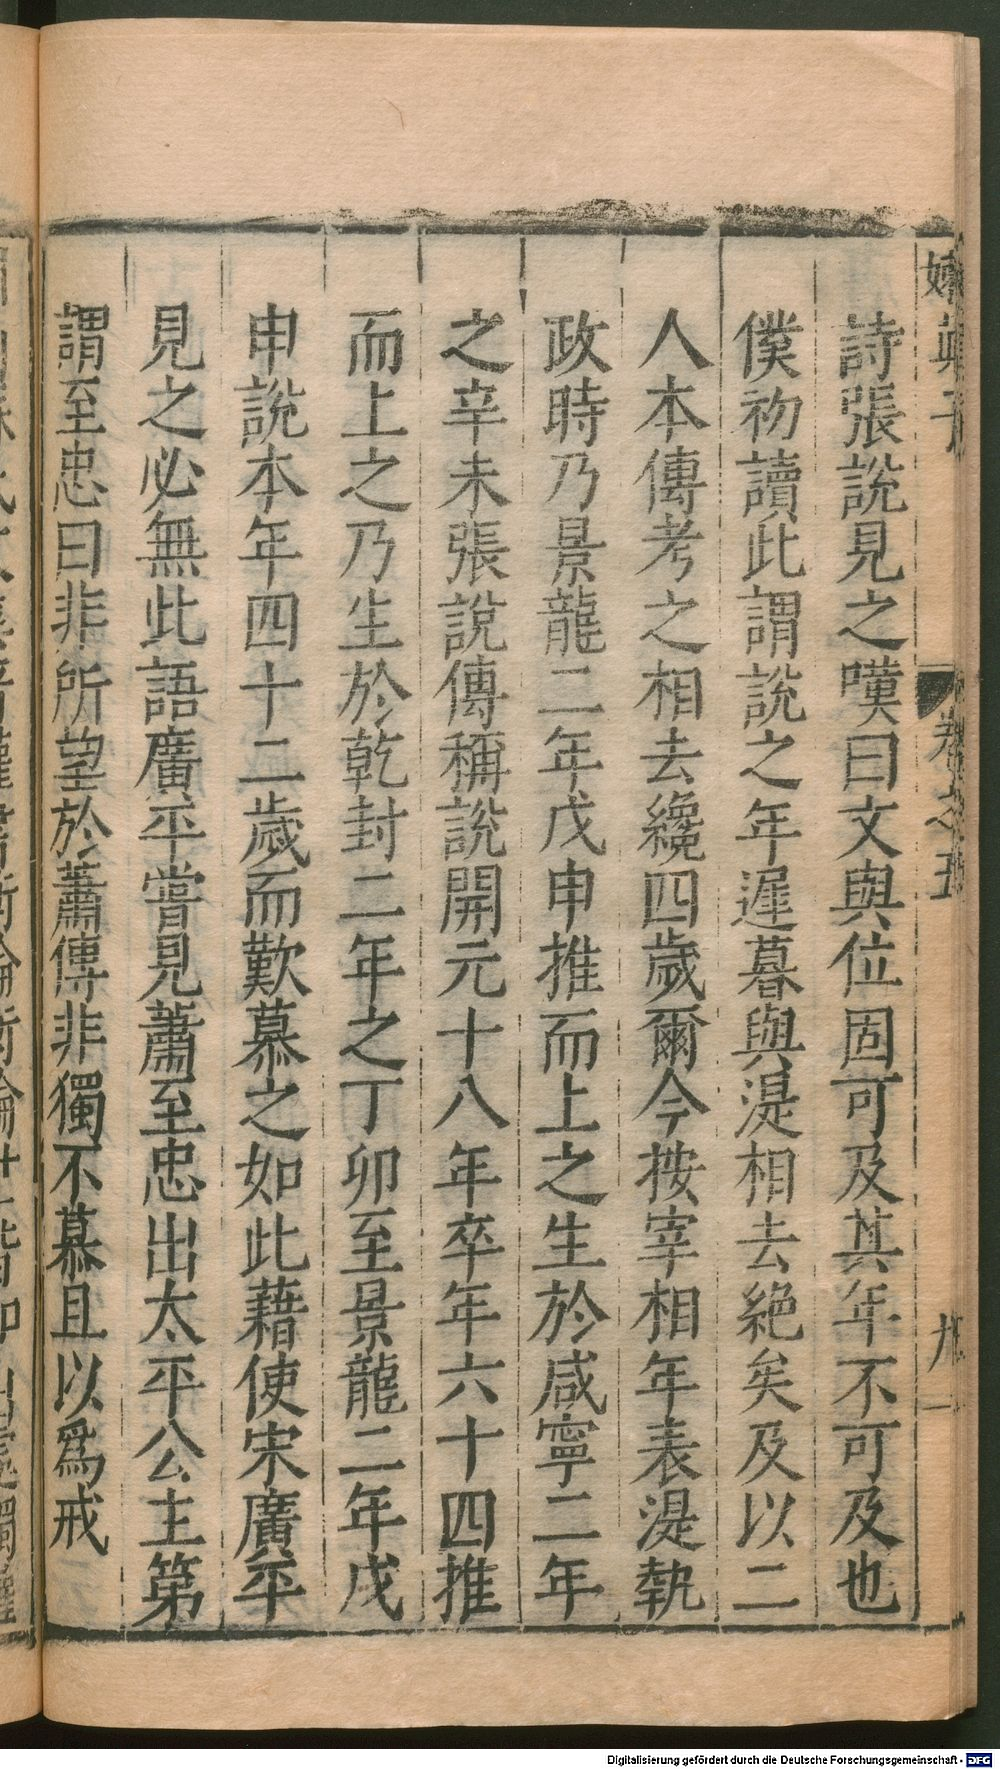 嬾真子 卷之五 九
詩張說見之嘆曰文與位固可及其年不可及也
僕初讀此謂說之年遲暮與湜相去絕矣及以二
人本傳考之相去纔四歲爾今按宰相年表湜執
政時乃景龍二年戊申推而上之生於咸寧二年
之辛未張說傳稱說開元十八年卒年六十四推
而上之乃生於乾封二年之丁卯至景龍二年戊
申說本年四十二歲而歎慕之如此藉使宋廣平
見之必無此語廣平嘗見蕭至忠出太平公主第
謂至忠曰非所望於蕭傅非獨不慕且以爲戒
Digitalisierung gefördert durch die Deutsche Forschungsgemeinschaft - DFG